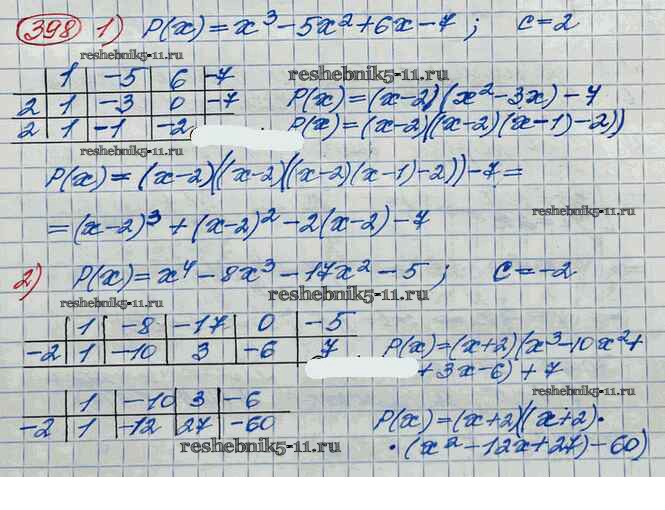 398 1) P(x) = x³ - 5x² + 6x - 7 ; c = 2
reshebnik5-11.ru
reshebnik5-11.ru
1 -5 6 -7
2 1 -3 0 -7
P(x) = (x-2)(x² - 3x) - 7
2 1 -1 -2
P(x) = (x-2)((x-2)(x-1)-2))
reshebnik5-11.ru
P(x) = (x-2)((x-2)((x-2)(x-1)-2))-7 =
reshebnik5-11.ru
= (x-2)³ + (x-2)² - 2(x-2) - 7
2) P(x) = x⁴ - 8x³ - 17x² - 5 ; c = -2
reshebnik5-11.ru
1 -8 -17 0 -5
-2 1 -10 3 -6 7
P(x) = (x+2)(x³ - 10x² +
+ 3x - 6) + 7
reshebnik5-11.ru
1 -10 3 -6
-2 1 -12 27 -60
P(x) = (x+2)((x+2) ·
· (x² - 12x + 27) - 60)
reshebnik5-11.ru